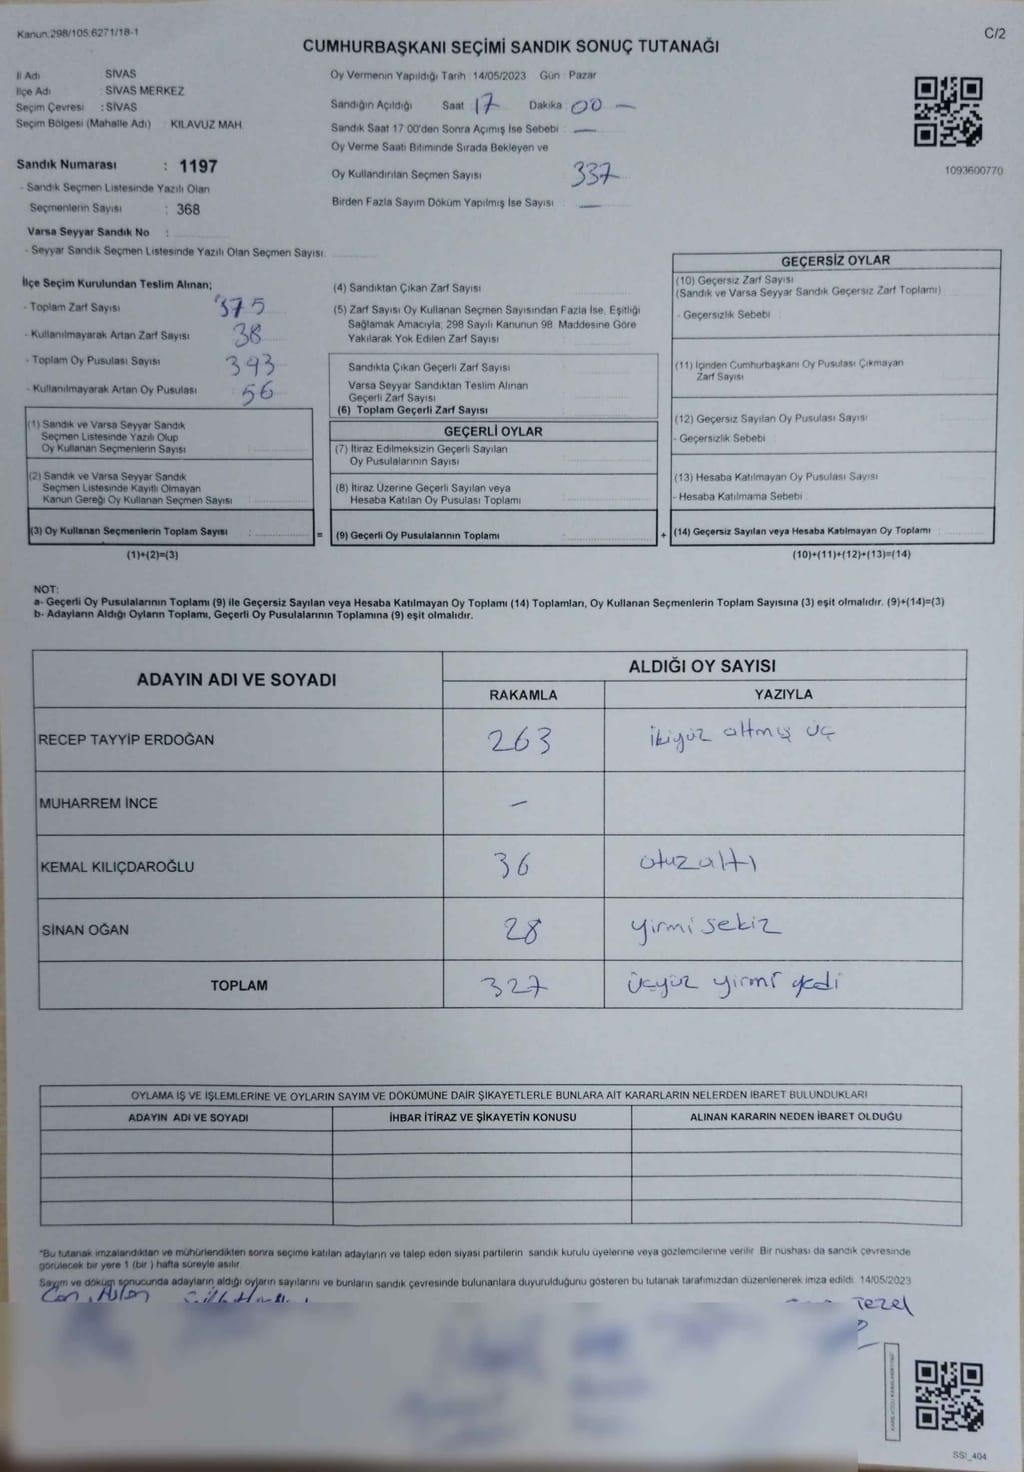 Kanun.298/105.6271/18-1
C/2
CUMHURBAŞKANI SEÇİMİ SANDIK SONUÇ TUTANAĞI
İl Adı SİVAS
İlçe Adı : SİVAS MERKEZ
Seçim Çevresi : SİVAS
Seçim Bölgesi (Mahalle Adı) KILAVUZ MAH.
Sandık Numarası : 1197
- Sandık Seçmen Listesinde Yazılı Olan
Seçmenlerin Sayısı : 368
Varsa Seyyar Sandık No :
- Seyyar Sandık Seçmen Listesinde Yazılı Olan Seçmen Sayısı
Oy Vermenin Yapıldığı Tarih : 14/05/2023 Gün : Pazar
Sandığın Açıldığı Saat 17 Dakika 00 —
Sandık Saat 17 00'den Sonra Açımış İse Sebebi : —
Oy Verme Saati Bitiminde Sırada Bekleyen ve
Oy Kullandırılan Seçmen Sayısı 337
Birden Fazla Sayım Döküm Yapılmış İse Sayısı : —
1093600770
İlçe Seçim Kurulundan Teslim Alınan;
- Toplam Zarf Sayısı 375
- Kullanılmayarak Artan Zarf Sayısı 38
- Toplam Oy Pusulası Sayısı 393
- Kullanılmayarak Artan Oy Pusulası 56
(1) Sandık ve Varsa Seyyar Sandık
Seçmen Listesinde Yazılı Olup
Oy Kullanan Seçmenlerin Sayısı
(2) Sandık ve Varsa Seyyar Sandık
Seçmen Listesinde Kayıtlı Olmayan
Kanun Gereği Oy Kullanan Seçmen Sayısı
(3) Oy Kullanan Seçmenlerin Toplam Sayısı :
(1)+(2)=(3)
=
(4) Sandıktan Çıkan Zarf Sayısı
(5) Zarf Sayısı Oy Kullanan Seçmen Sayısından Fazla İse, Eşitliği
Sağlamak Amacıyla, 298 Sayılı Kanunun 98. Maddesine Göre
Yakılarak Yok Edilen Zarf Sayısı
Sandıkta Çıkan Geçerli Zarf Sayısı
Varsa Seyyar Sandıktan Teslim Alınan
Geçerli Zarf Sayısı
(6) Toplam Geçerli Zarf Sayısı
GEÇERLİ OYLAR
(7) İtiraz Edilmeksizin Geçerli Sayılan
Oy Pusulalarının Sayısı
(8) İtiraz Üzerine Geçerli Sayılan veya
Hesaba Katılan Oy Pusulası Toplamı
(9) Geçerli Oy Pusulalarının Toplamı
+
GEÇERSİZ OYLAR
(10) Geçersiz Zarf Sayısı
(Sandık ve Varsa Seyyar Sandık Geçersiz Zarf Toplamı)
- Geçersizlik Sebebi
(11) İçinden Cumhurbaşkanı Oy Pusulası Çıkmayan
Zarf Sayısı
(12) Geçersiz Sayılan Oy Pusulası Sayısı
- Geçersizlik Sebebi
(13) Hesaba Katılmayan Oy Pusulası Sayısı
- Hesaba Katılmama Sebebi
(14) Geçersiz Sayılan veya Hesaba Katılmayan Oy Toplamı
(10)+(11)+(12)+(13)=(14)
NOT:
a- Geçerli Oy Pusulalarının Toplamı (9) ile Geçersiz Sayılan veya Hesaba Katılmayan Oy Toplamı (14) Toplamları, Oy Kullanan Seçmenlerin Toplam Sayısına (3) eşit olmalıdır. (9)+(14)=(3)
b- Adayların Aldığı Oyların Toplamı, Geçerli Oy Pusulalarının Toplamına (9) eşit olmalıdır.
ADAYIN ADI VE SOYADI
ALDIĞI OY SAYISI
RAKAMLA YAZIYLA
RECEP TAYYİP ERDOĞAN 263 ikiyüz altmış üç
MUHARREM İNCE –
KEMAL KILIÇDAROĞLU 36 otuzaltı
SİNAN OĞAN 28 yirmi sekiz
TOPLAM 327 üçyüz yirmi yedi
OYLAMA İŞ VE İŞLEMLERİNE VE OYLARIN SAYIM VE DÖKÜMÜNE DAİR ŞİKAYETLERLE BUNLARA AİT KARARLARIN NELERDEN İBARET BULUNDUKLARI
ADAYIN ADI VE SOYADI İHBAR İTİRAZ VE ŞİKAYETİN KONUSU ALINAN KARARIN NEDEN İBARET OLDUĞU
*Bu tutanak imzalandıktan ve mühürlendikten sonra seçime katılan adayların ve talep eden siyasi partilerin sandık kurulu üyelerine veya gözlemcilerine verilir. Bir nushası da sandık çevresinde
görülecek bir yere 1 (bir ) hafta süreyle asılır.
Sayım ve döküm sonucunda adayların aldığı oyların sayılarını ve bunların sandık çevresinde bulunanlara duyurulduğunu gösteren bu tutanak tarafımızdan düzenlenerek imza edildi. 14/05/2023
Tezel
SSI_404